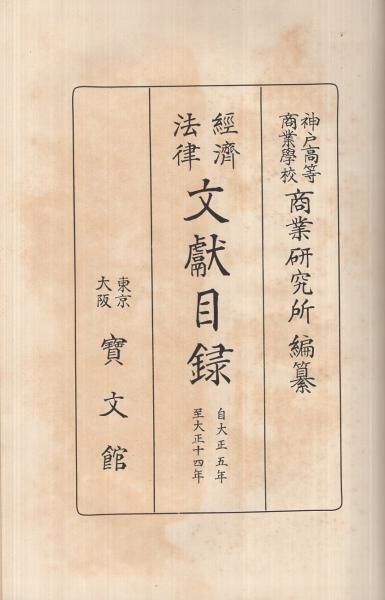 神戸高等
商業學校
商業研究所 編纂
經濟
法律
文獻目録
自大正五年
至大正十四年
東京
大阪
寶文館